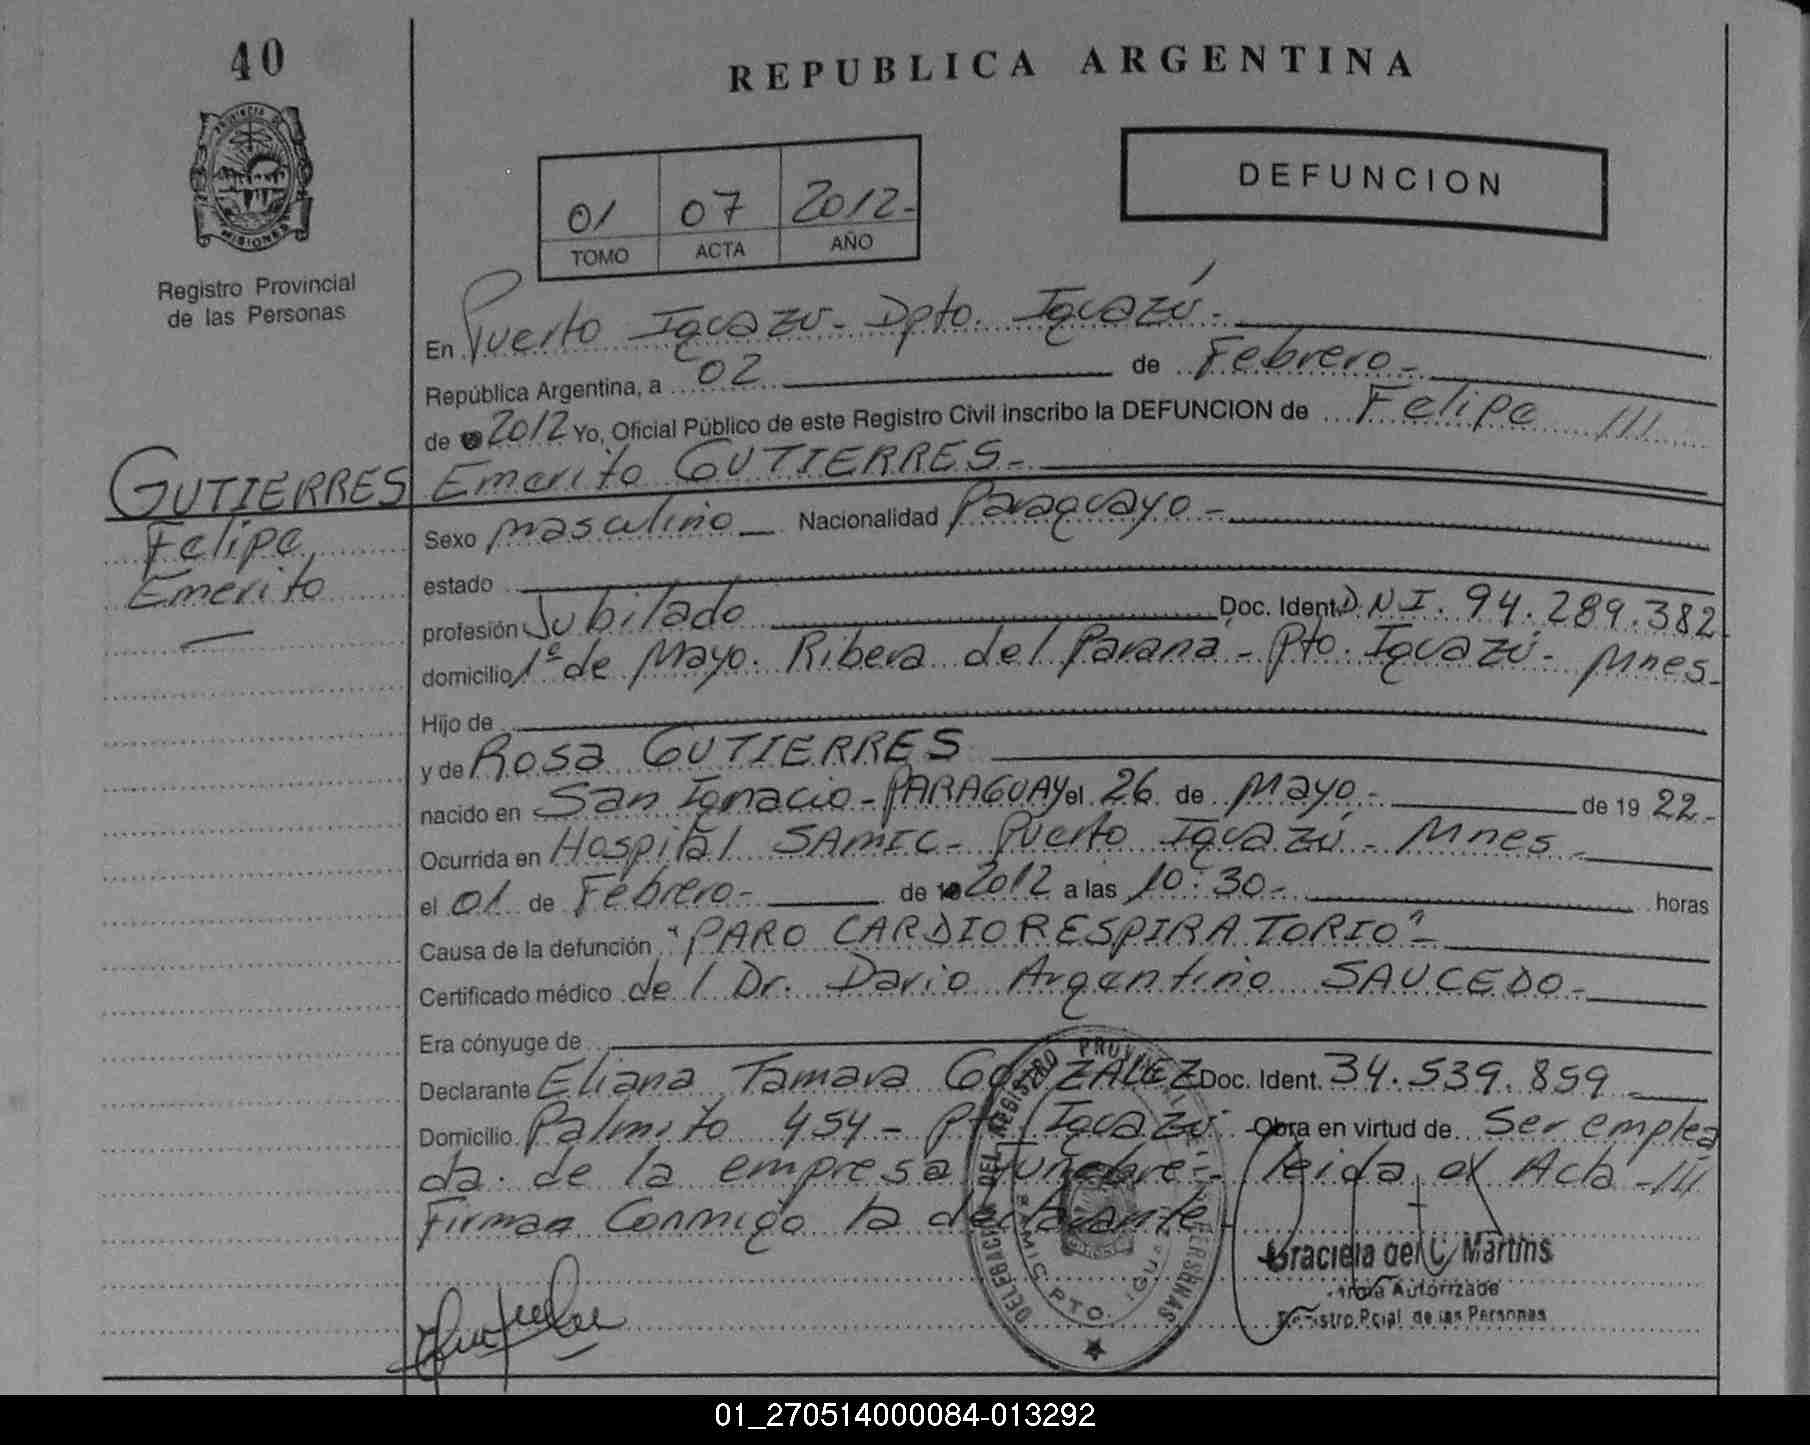 40
REPUBLICA ARGENTINA
PROVINCIA DE
MISIONES
Registro Provincial
de las Personas
01 07 2012-
TOMO ACTA AÑO
DEFUNCION
En Puerto Iguazú- Dpto. Iguazú-
República Argentina, a 02 de Febrero-
de 2012 Yo, Oficial Público de este Registro Civil inscribo la DEFUNCION de Felipe ///
Emerito GUTIERRES-
GUTIERRES
Felipe
Emerito
Sexo masculino Nacionalidad Paraguayo-
estado
profesión Jubilado Doc. Ident. D.N.I. 94.289.382
domicilio 1º de Mayo. Ribera del Paraná- Pto. Iguazú- Mnes-
Hijo de
y de Rosa GUTIERRES
nacido en San Ignacio-PARAGUAY el 26 de Mayo- de 19 22-
Ocurrida en Hospital SAMIC- Puerto Iguazú- Mnes-
el 01 de Febrero- de 2012 a las 10:30- horas
Causa de la defunción "PARO CARDIORESPIRATORIO"-
Certificado médico del Dr. Dario Argentino SAUCEDO-
Era cónyuge de
Declarante Eliana Tamara GONZALEZ Doc. Ident. 34.539.859
Domicilio Palmito 454- Pto Iguazú- Obra en virtud de Ser emplea
da de la empresa funebre- leida el Acta-///
Firman Conmigo la declarante-
DELEGACION DEL REGISTRO PROVINCIAL DE LAS PERSONAS
SAMIC PTO. IGUAZU
Graciela del C. Martins
Firma Autorizada
Registro Pcial de las Personas
01_270514000084-013292